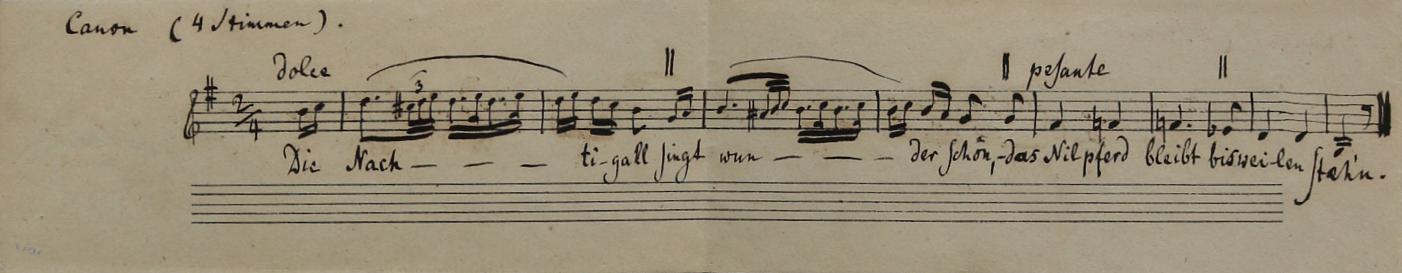 Canon (4 Stimmen).
dolce pesante
3
2/4
Die Nach — — — — ti-gall singt wun — — — der schön,-das Nilpferd bleibt biswei-len steh'n.